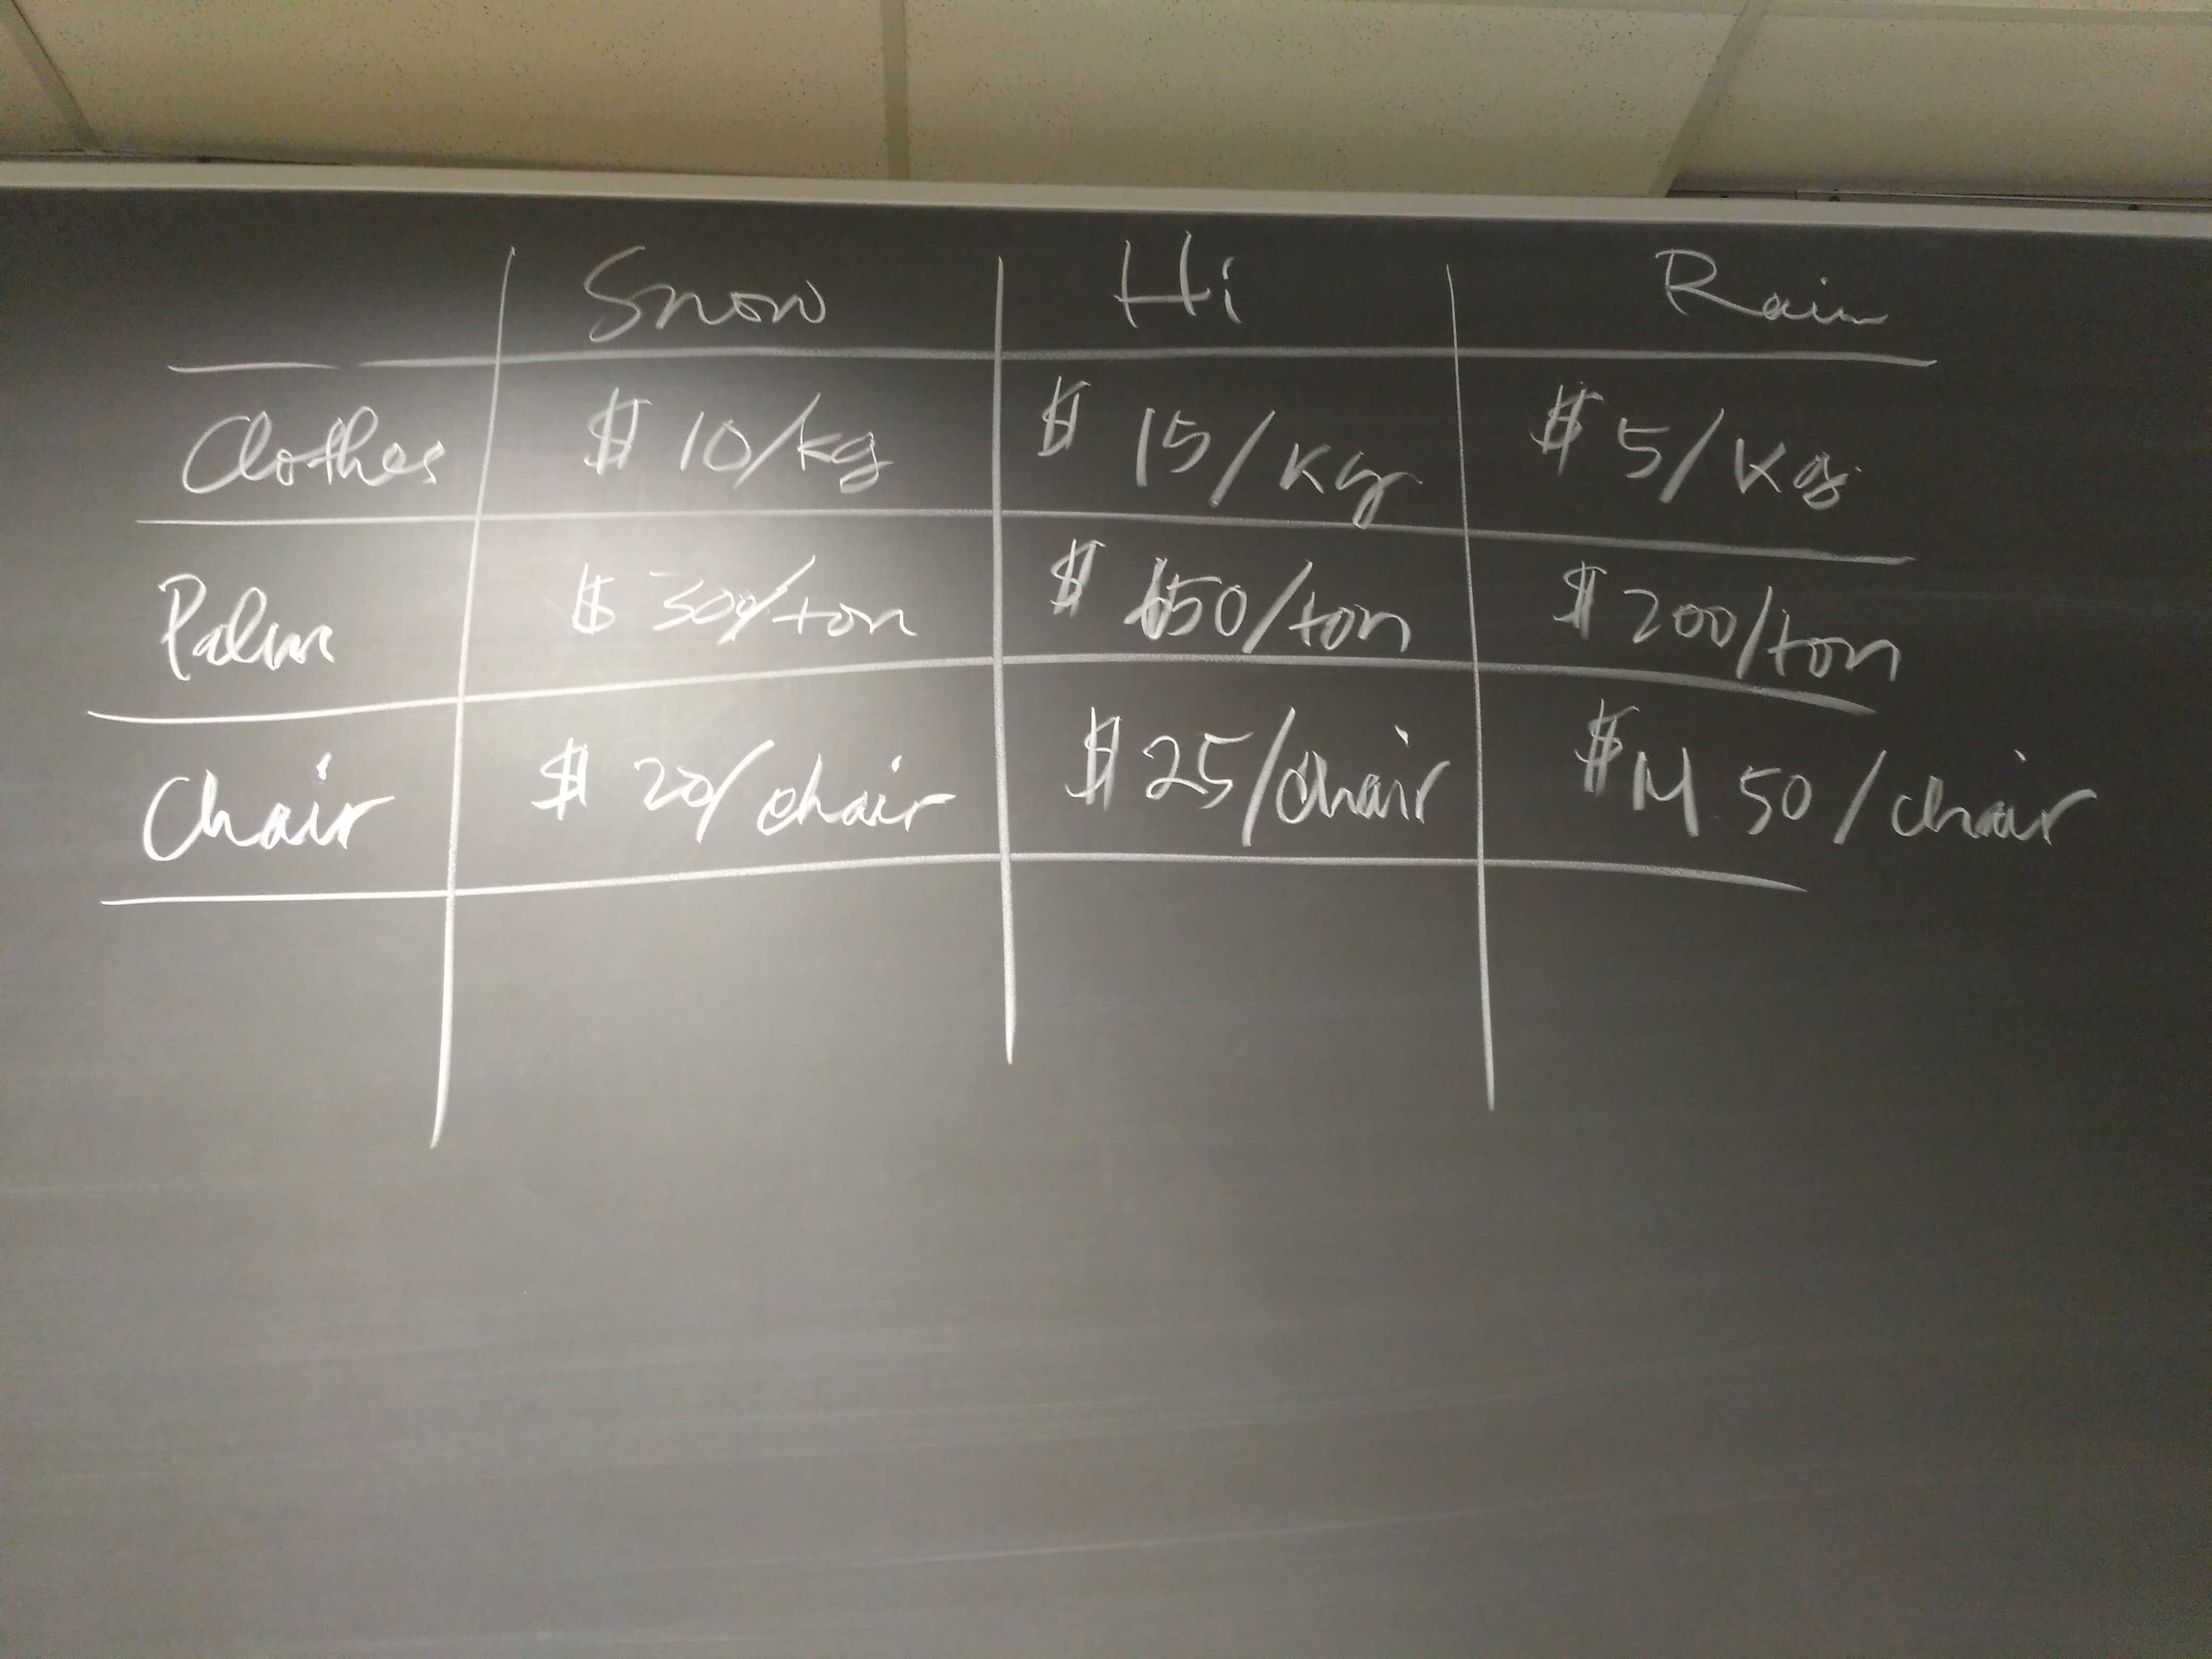 Snow Hi Rain
Clothes $ 10/kg $ 15/kg $ 5/kg
Palm $ 300/ton $ 150/ton $ 200/ton
Chair $ 20/chair $ 25/chair $ 50/chair